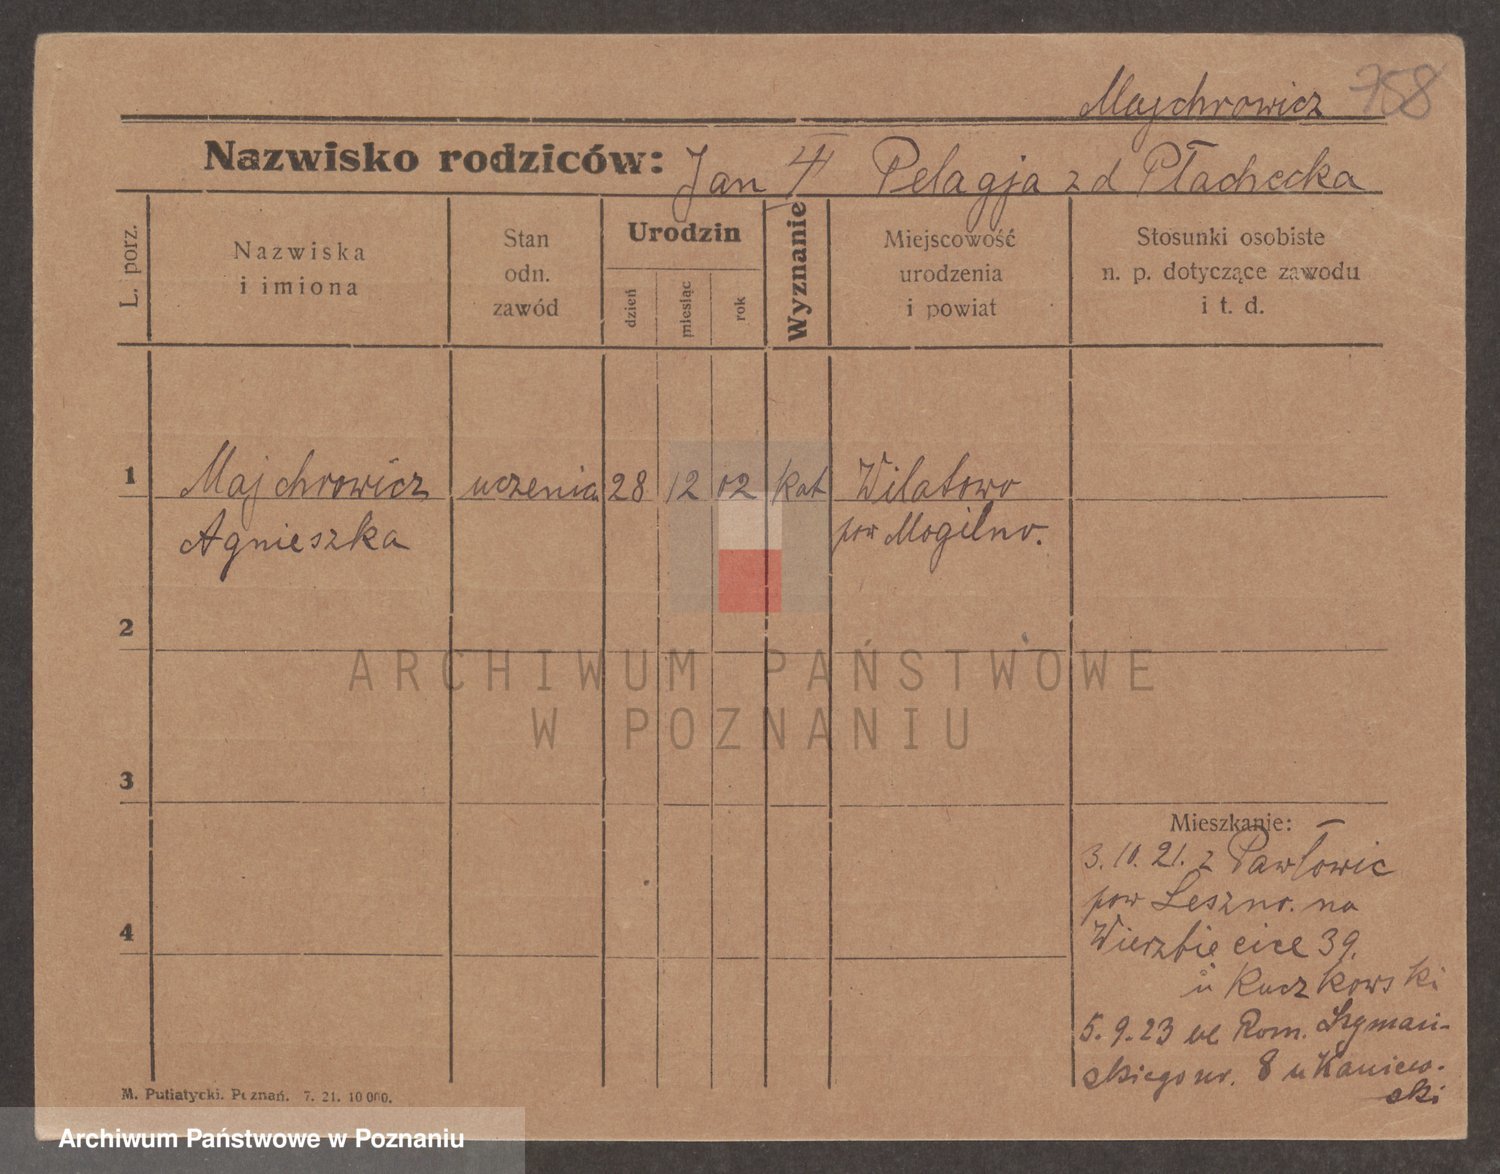 Majchrowicz 758
Nazwisko rodziców: Jan Pelagja z d Płachecka
L. porz.
Nazwiska
i imiona
Stan
odn.
zawód
Urodzin
dzień
miesiąc
rok
Wyznanie
Miejscowość
urodzenia
i powiat
Stosunki osobiste
n. p. dotyczące zawodu
i t. d.
1 Majchrowicz uczenia 28 12 02 kat Wilatowo
Agnieszka pow Mogilno.
2
ARCHIWUM PAŃSTWOWE
W POZNANIU
3
Mieszkanie:
3.10.21. z Pawłowic
pow Leszno. na
4 Wierzbiecice 39.
u Kuczkowski
5.9.23 ul Rom. Szymań-
skiego nr. 8 u Kaniew-
ski
M. Putiatycki. Poznań. 7. 21. 10 000.
Archiwum Państwowe w Poznaniu